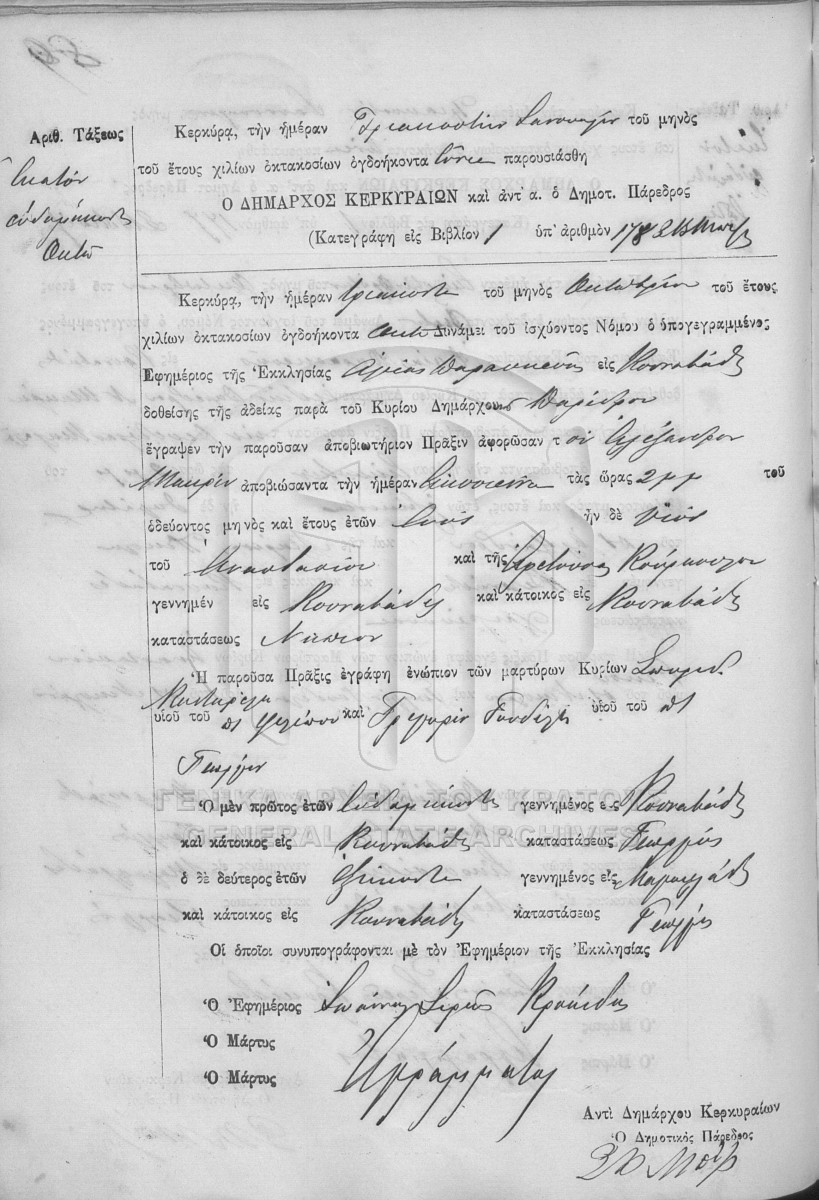 Ἀριθ. Τάξεως
Ἑκατόν
ἑβδομήκοντα
Ὀκτώ
Κερκύρᾳ, τὴν ἡμέραν Τριακοστήν Ἰανουαρίου τοῦ μηνὸς
τοῦ ἔτους χιλίων ὀκτακοσίων ὀγδοήκοντα ἐννέα παρουσιάσθη
Ο ΔΗΜΑΡΧΟΣ ΚΕΡΚΥΡΑΙΩΝ καὶ ἀντ' α. ὁ Δημοτ. Πάρεδρος
(Κατεγράφη εἰς Βιβλίον 1 ὑπ' ἀριθμὸν 178
Κερκύρᾳ, τὴν ἡμέραν τριακοστή τοῦ μηνὸς Ὀκτωβρίου τοῦ ἔτους
χιλίων ὀκτακοσίων ὀγδοήκοντα ὀκτώ Δυνάμει τοῦ ἰσχύοντος Νόμου ὁ ὑπογεγραμμένος
Ἐφημέριος τῆς Ἐκκλησίας Ἁγίας Παρασκευῆς εἰς Κουναβάδες
δοθείσης τῆς ἀδείας παρὰ τοῦ Κυρίου Δημάρχου Παρέδρου
ἔγραψεν τὴν παροῦσαν ἀποβιωτήριον Πρᾶξιν ἀφορῶσαν τ όν Ἀλέξανδρον
Μακρήν ἀποβιώσαντα τὴν ἡμέραν εἰκοσιεννέα τὰς ὥρας 2 μμ τοῦ
ὁδεύοντος μηνὸς καὶ ἔτους ἐτῶν ἑνός ἦν δὲ υἱός
τοῦ Ἀναστασίου καὶ τῆς Ἀρετούσας
γεννημέν εἰς Κουναβάδες καὶ κάτοικος εἰς Κουναβάδες
καταστάσεως Νήπιον
Ἡ παροῦσα Πρᾶξις ἐγράφη ἐνώπιον τῶν μαρτύρων Κυρίων Σπυρίδ.
υἱοῦ τοῦ πτ Φιλίππου καὶ Γρηγορίου υἱοῦ τοῦ πτ
Γεωργίου
Ὁ μὲν πρῶτος ἐτῶν ἑβδομήκοντα γεννημένος εἰς Κουναβάδες
καὶ κάτοικος εἰς Κουναβάδες καταστάσεως Γεωργός
ὁ δὲ δεύτερος ἐτῶν ἑξήκοντα γεννημένος εἰς
καὶ κάτοικος εἰς Κουναβάδες καταστάσεως Γεωργός
Οἱ ὁποῖοι συνυπογράφονται μὲ τὸν Ἐφημέριον τῆς Ἐκκλησίας
Ὁ Ἐφημέριος Ἰωάννης Ἱερεύς
Ὁ Μάρτυς
Ὁ Μάρτυς Ἀγράμματοι
Ἀντὶ Δημάρχου Κερκυραίων
Ὁ Δημοτικὸς Πάρεδρος
ΓΕΝΙΚΑ ΑΡΧΕΙΑ ΤΟΥ ΚΡΑΤΟΥΣ
GENERAL STATE ARCHIVES